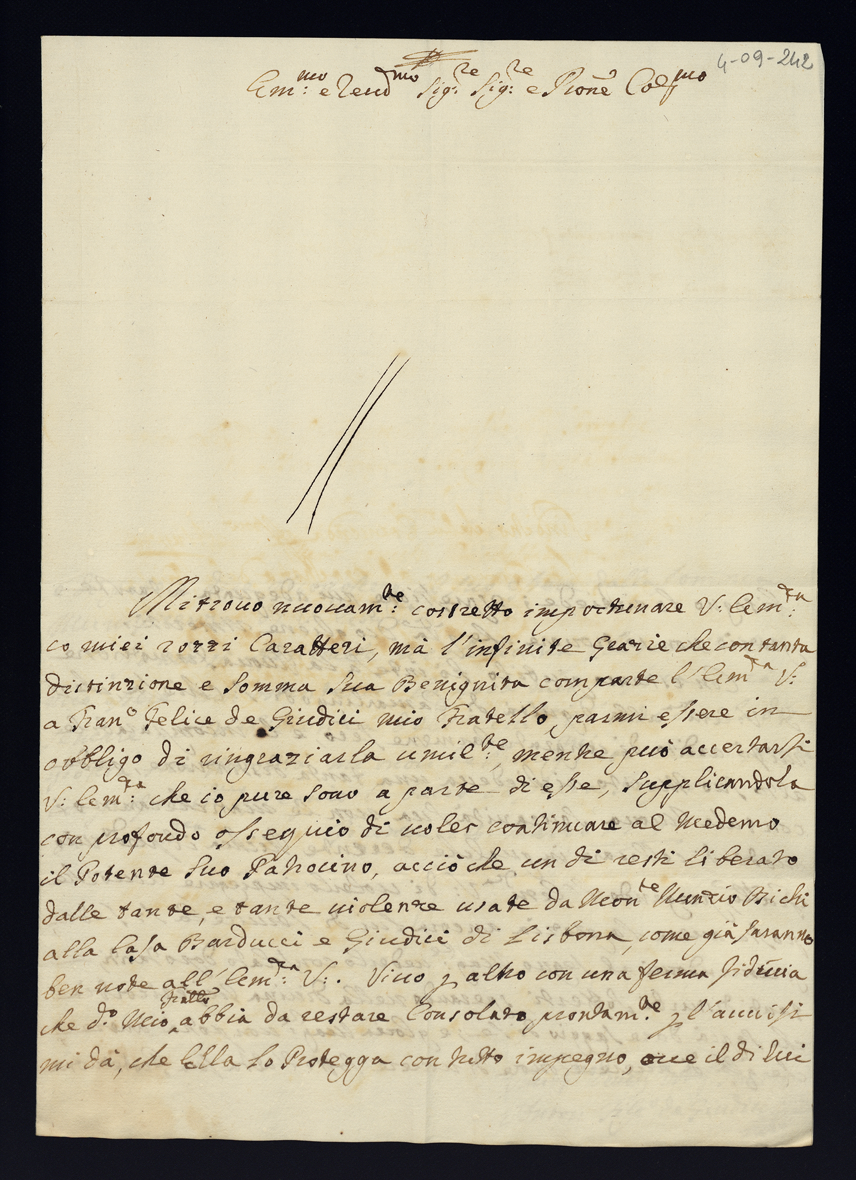 4-09-242
Em:mo e Revd:mo Sig:re Sig:re e Prone Col:mo
Mi trovo nuovam:te costretto importunare V: Em:za
co miei rozzi Caratteri, mà l'infinite Grazie che con tanta
distinzione e somma sua Benignita comparte l'Em:za V:
a Fran:o Felice de Giudici mio Fratello parmi essere in
obbligo di ringraziarla umil:te, mentre può accertarsi
V: Em:za che io pure sono a parte di esse, supplicandola
con profondo ossequio di voler continuare al Medemo
il Potente suo Patrocino, acciò che un di resti liberato
dalle tante, e tante violenze usate da Mon:re Nunzio Bichi
alla Casa Barducci e Giudici di Lisbona, come già saranno
ben note all'Em:za V:. Vivo p altro con una ferma fiducia
che d:o Mio Fratello abbia da restare Consolato prontam:te p l'avvisi
mi dà, che Ella lo Protegga con tutto impegno, ove il di lui